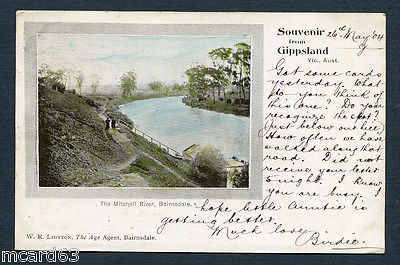 Souvenir
from
Gippsland
Vic., Aust.
26th May 04
Got some cards
yesterday. What
do you think of
this one? Do you
recognize the spot?
Just below our hill
How often we have
walked along that
road. Did not
receive your letter
tonight. I know
you are busy.
hope little Auntie is
getting better.
Much love.
Birdie.
The Mitchell River, Bairnsdale.
W. R. Lidston, The Age Agent, Bairnsdale.
© mcard63